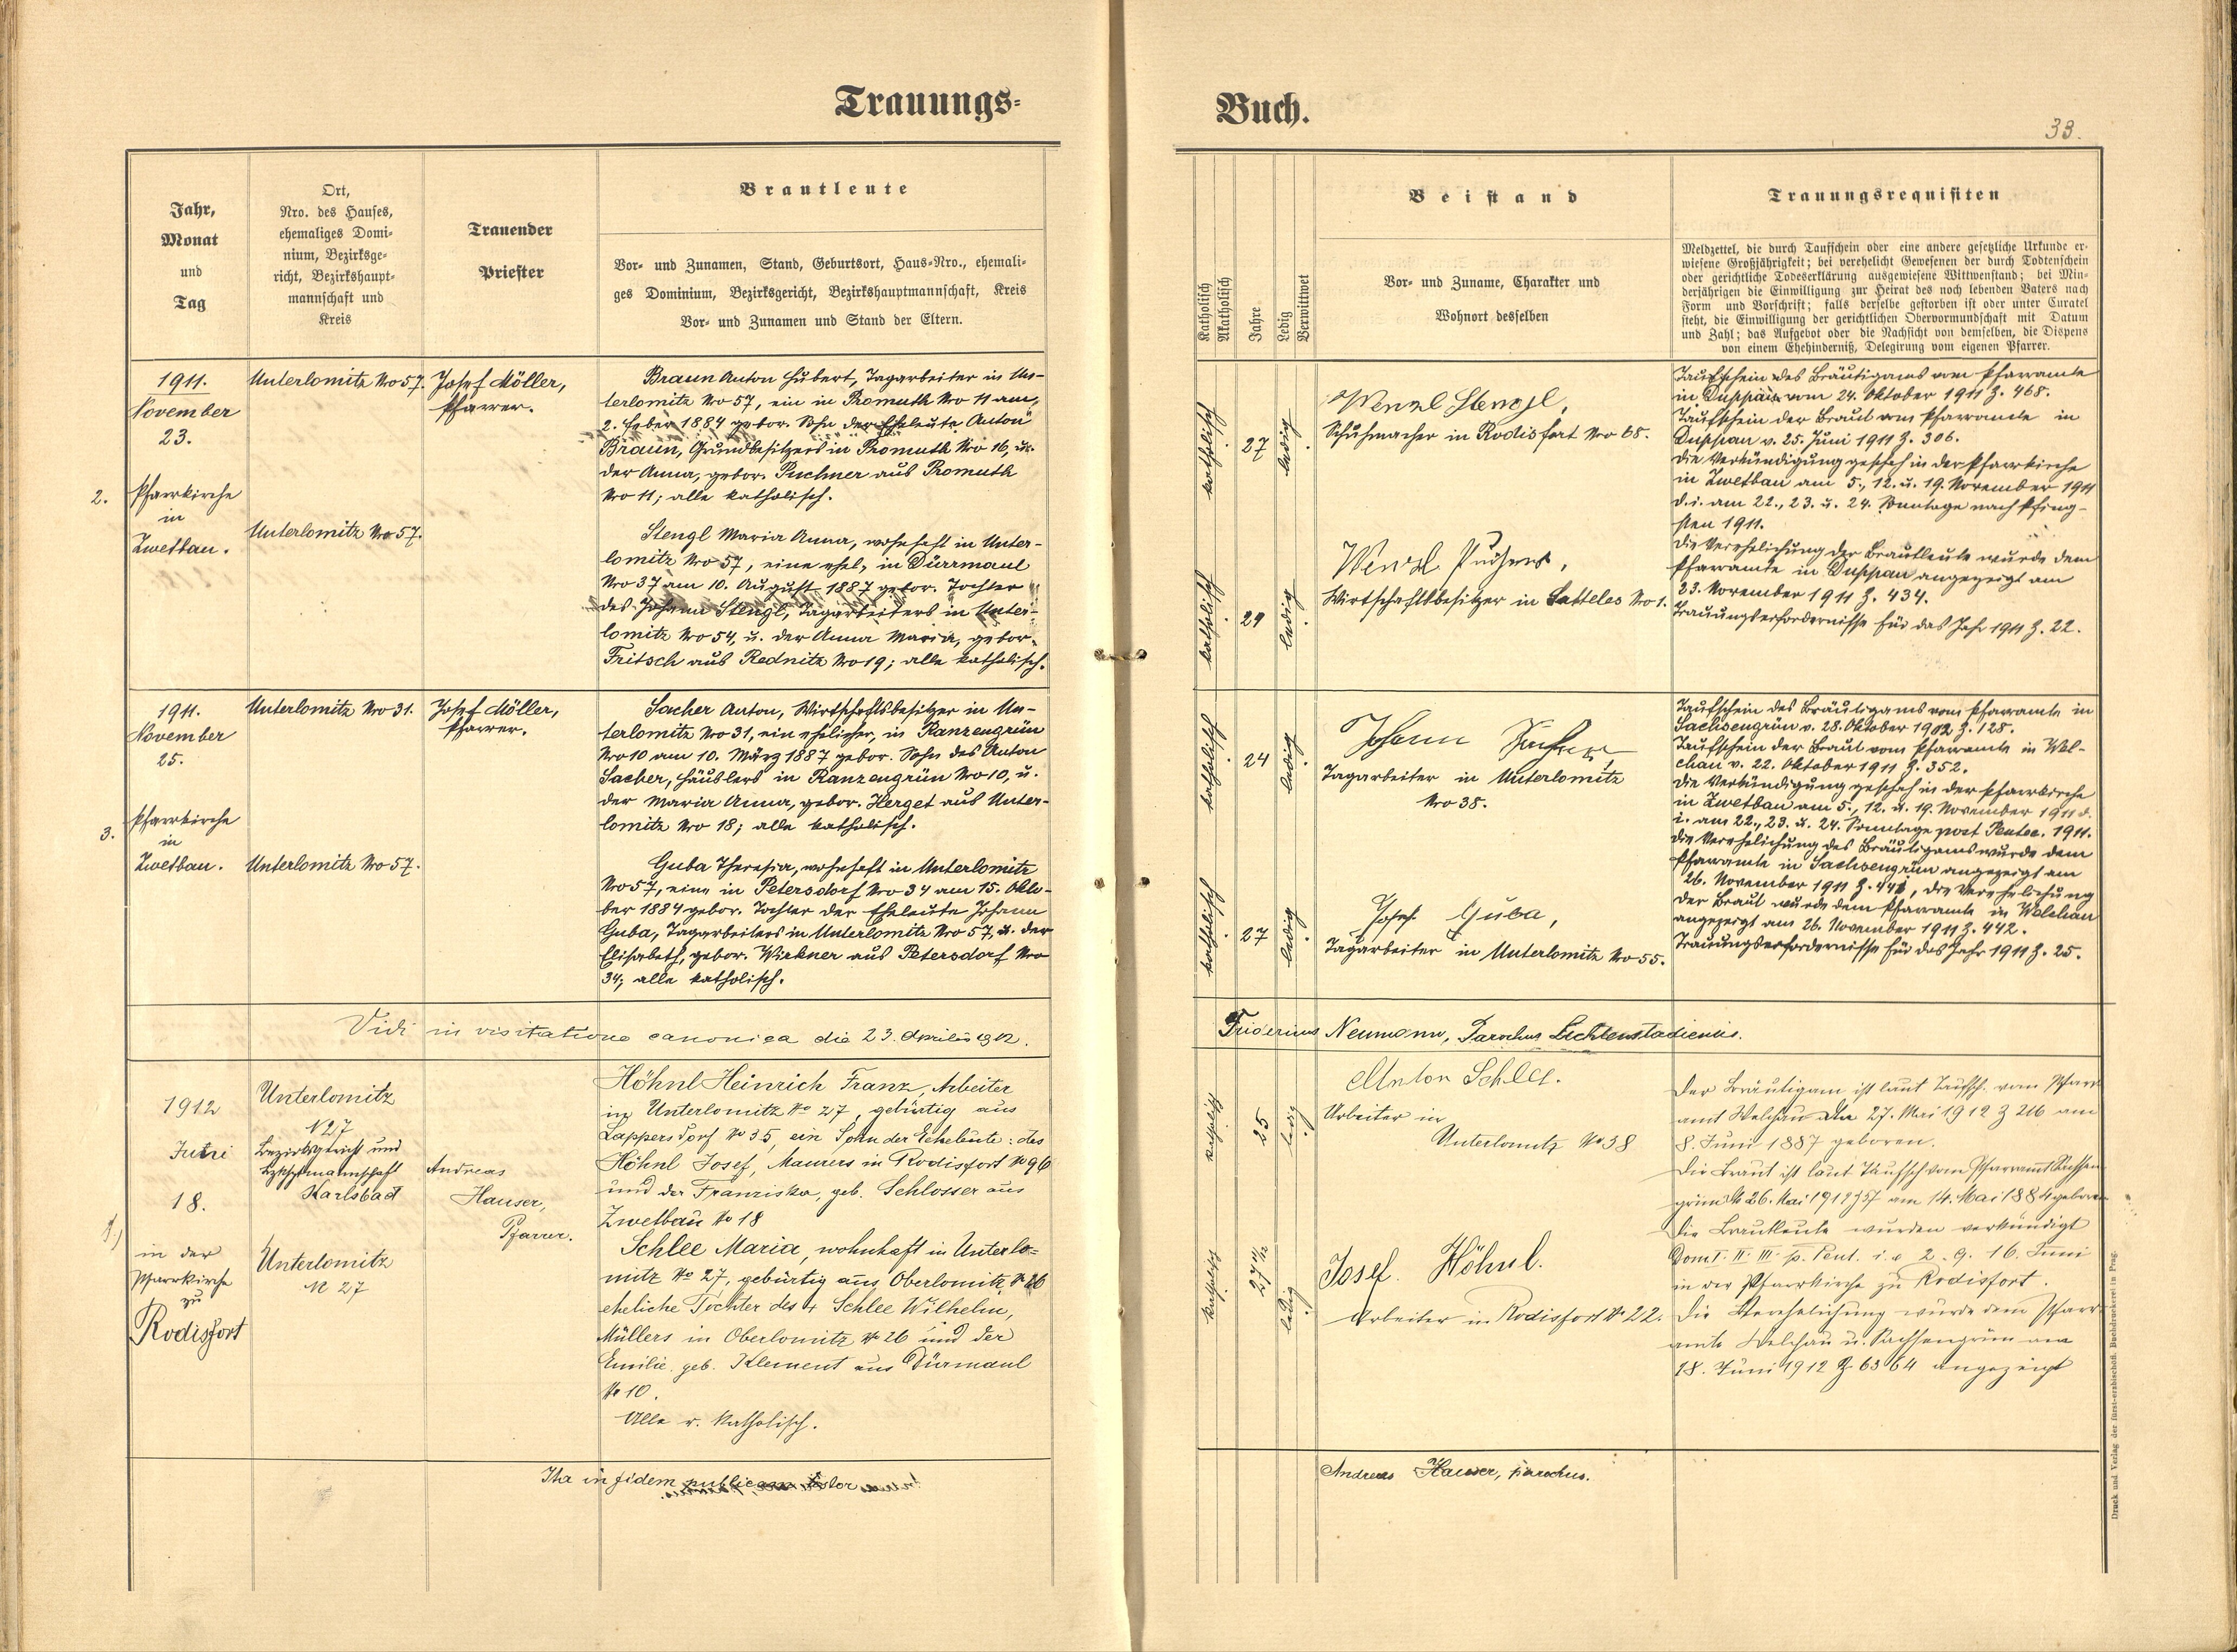 Trauungs-
Buch.
33.
Jahr,
Monat
und
Tag
Ort,
Nro. des Hauses,
ehemaliges Domi-
nium, Bezirksge-
richt, Bezirkshaupt-
mannschaft und
Kreis
Trauender
Priester
Brautleute
Vor- und Zunamen, Stand, Geburtsort, Haus-Nro., ehemali-
ges Dominium, Bezirksgericht, Bezirkshauptmannschaft, Kreis
Vor- und Zunamen und Stand der Eltern.
Katholisch
Akatholisch
Jahre
Ledig
Verwittwet
Beistand
Vor- und Zuname, Charakter und
Wohnort desselben
Trauungsrequisiten
Meldzettel, die durch Taufschein oder eine andere gesetzliche Urkunde er-
wiesene Großjährigkeit; bei verehelicht Gewesenen der durch Todtenschein
oder gerichtliche Todeserklärung ausgewiesene Wittwenstand; bei Min-
derjährigen die Einwilligung zur Heirat des noch lebenden Vaters nach
Form und Vorschrift; falls derselbe gestorben ist oder unter Curatel
steht, die Einwilligung der gerichtlichen Obervormundschaft mit Datum
und Zahl; das Aufgebot oder die Nachsicht von demselben, die Dispens
von einem Ehehinderniß, Delegirung vom eigenen Pfarrer.
2.
1911.
November
23.
Pfarrkirche
in
Zwetbau.
Unterlomitz Nro 57.
Unterlomitz Nro 57.
Josef Möller,
Pfarrer.
Braun Anton Hubert, Tagarbeiter in Un-
terlomitz Nro 57, ein in Promuth Nro 11 am
2. Feber 1884 gebor. Sohn der Eheleute Anton
Braun, Grundbesitzers in Promuth Nro 16, u.
der Anna, gebor. Puchner aus Promuth
Nro 11; alle katholisch.
Stengl Maria Anna, wohnhaft in Unter-
lomitz Nro 57, eine ehel., in Dürrmaul
Nro 37 am 10. August 1887 gebor. Tochter
des Johann Stengl, Tagarbeiters in Unter-
lomitz Nro 54, u. der Anna Maria, gebor.
Fritsch aus Rednitz Nro 19; alle katholisch.
katholisch
27
ledig
katholisch
29
ledig
Wenzl Stengl,
Schuhmacher in Rodisfort Nro 68.
Wenzl Puchner,
Wirtschaftsbesitzer in Satteles Nro 1.
Taufschein des Bräutigams vom Pfarramte
in Duppau vom 24. Oktober 1911 Z. 468.
Taufschein der Braut vom Pfarramte in
Duppau v. 25. Juni 1911 Z. 306.
Die Verkündigung geschah in der Pfarrkirche
in Zwetbau am 5., 12. u. 19. November 1911
d. i. am 22., 23. u. 24. Sonntage nach Pfing-
sten 1911.
Die Verehelichung der Brautleute wurde dem
Pfarramte in Duppau angezeigt am
23. November 1911 Z. 434.
Trauungserfordernisse für das Jahr 1911 Z. 22.
3.
1911.
November
25.
Pfarrkirche
in
Zwetbau.
Unterlomitz Nro 31.
Unterlomitz Nro 57.
Josef Möller,
Pfarrer.
Sacher Anton, Wirtschaftsbesitzer in Un-
terlomitz Nro 31, ein ehelicher, in Ranzengrün
Nro 10 am 10. März 1887 gebor. Sohn des Anton
Sacher, Häuslers in Ranzengrün Nro 10, u.
der Maria Anna, gebor. Herget aus Unter-
lomitz Nro 18; alle katholisch.
Guba Theresia, wohnhaft in Unterlomitz
Nro 57, eine in Petersdorf Nro 34 am 15. Okto-
ber 1884 gebor. Tochter der Eheleute Johann
Guba, Tagarbeiters in Unterlomitz Nro 57, u. der
Elisabeth, gebor. Wirkner aus Petersdorf Nro
34; alle katholisch.
katholisch
24
ledig
katholisch
27
ledig
Johann
Tagarbeiter in Unterlomitz
Nro 38.
Josef Guba,
Tagarbeiter in Unterlomitz Nro 55.
Taufschein des Bräutigams vom Pfarramte in
Sachsengrün v. 28. Oktober 1902 Z. 128.
Taufschein der Braut vom Pfarramte in Wel-
chau v. 22. Oktober 1911 Z. 352.
Die Verkündigung geschah in der Pfarrkirche
in Zwetbau am 5., 12. u. 19. November 1911 d.
i. am 22., 23. u. 24. Sonntage post Pentec. 1911.
Die Verehelichung des Bräutigams wurde dem
Pfarramte in Sachsengrün angezeigt am
26. November 1911 Z. 441, die Verehelichung
der Braut wurde dem Pfarramte in Welchau
angezeigt am 26. November 1911 Z. 442.
Trauungserfordernisse für das Jahr 1911 Z. 25.
Vidi in visitatione canonica die 23. Aprilis 1912.
Neumann, Parochus Lichtenstadiensis.
1.)
1912
Juni
18.
in der
Pfarrkirche
zu
Rodisfort
Unterlomitz
N 27
Bezirksgericht und
Bzkshptmannschaft
Karlsbad
Unterlomitz
N 27
Andreas
Hauser,
Pfarrer.
Höhnl Heinrich Franz, Arbeiter
in Unterlomitz No 27, gebürtig aus
Lappersdorf No 35, ein Sohn der Eheleute: des
Höhnl Josef, Maurers in Rodisfort No 96
und der Franziska, geb. Schlosser aus
Zwetbau No 18
Schlee Maria, wohnhaft in Unterlo-
mitz No 27, gebürtig aus Oberlomitz No 26
eheliche Tochter des + Schlee Wilhelm,
Müllers in Oberlomitz No 26 und der
Emilie, geb. Klement aus Dürmaul
No 10.
Alle r. katholisch.
katholisch
25
ledig
katholisch
27 11/12
ledig
Anton Schlee.
Arbeiter in
Unterlomitz No 38
Josef Höhnl.
Arbeiter in Rodisfort No 22.
Der Bräutigam ist laut Taufsch. vom Pfarr
amt Welchau dto 27. Mai 1912 Z 216 am
8. Juni 1887 geboren.
Die Braut ist laut Taufsch vom Pfarramt Sachsen
grün dto 26. Mai 1912 Z 57 am 14. Mai 1884 geboren
Die Brautleute wurden verkündigt
Dom I. II. III. p. Pent. i. e 2. 9. 16. Juni
in der Pfarrkirche zu Rodisfort.
Die Verehelichung wurde dem Pfarr
amte Welchau u. Sachsengrün am
18. Juni 1912 Z 63 64 angezeigt
Ita in fidem publicam testor
Andreas Hauser, parochus.
Druck und Verlag der fürst-erzbischöfl. Buchdruckerei in Prag.